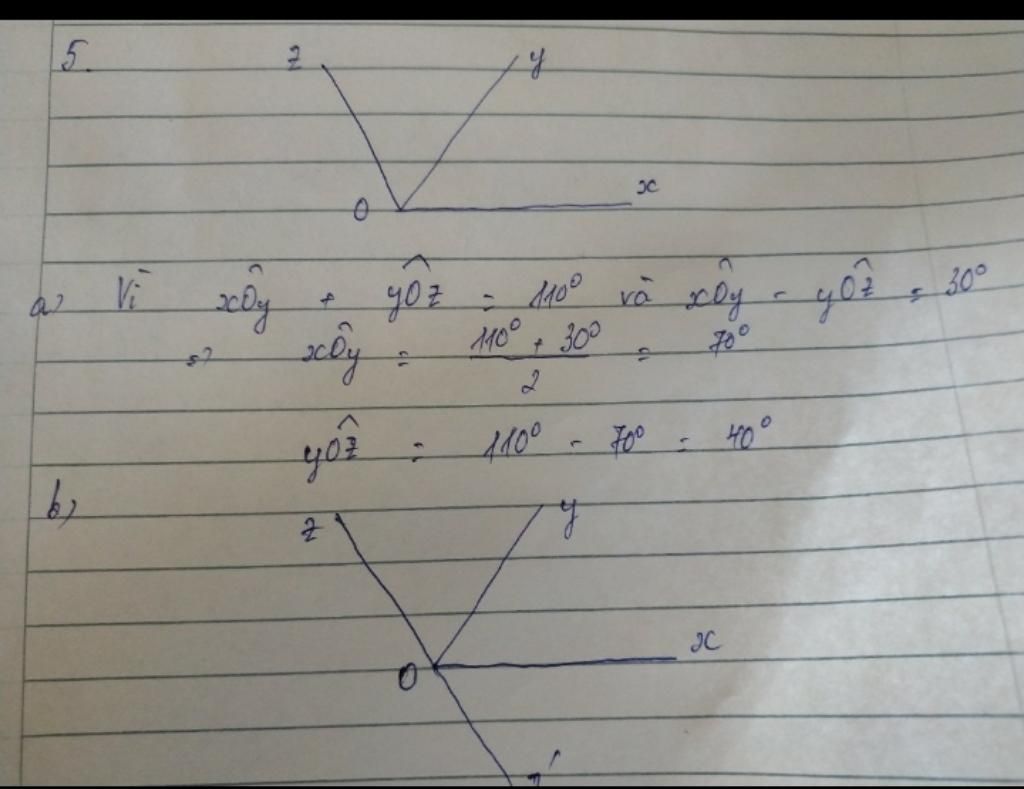 5.
z y
O x
a) Vì xÔy + yÔz = 110° và xÔy - yÔz = 30°
=> xÔy = (110° + 30°)/2 = 70°
yÔz = 110° - 70° = 40°
b)
z y
O x